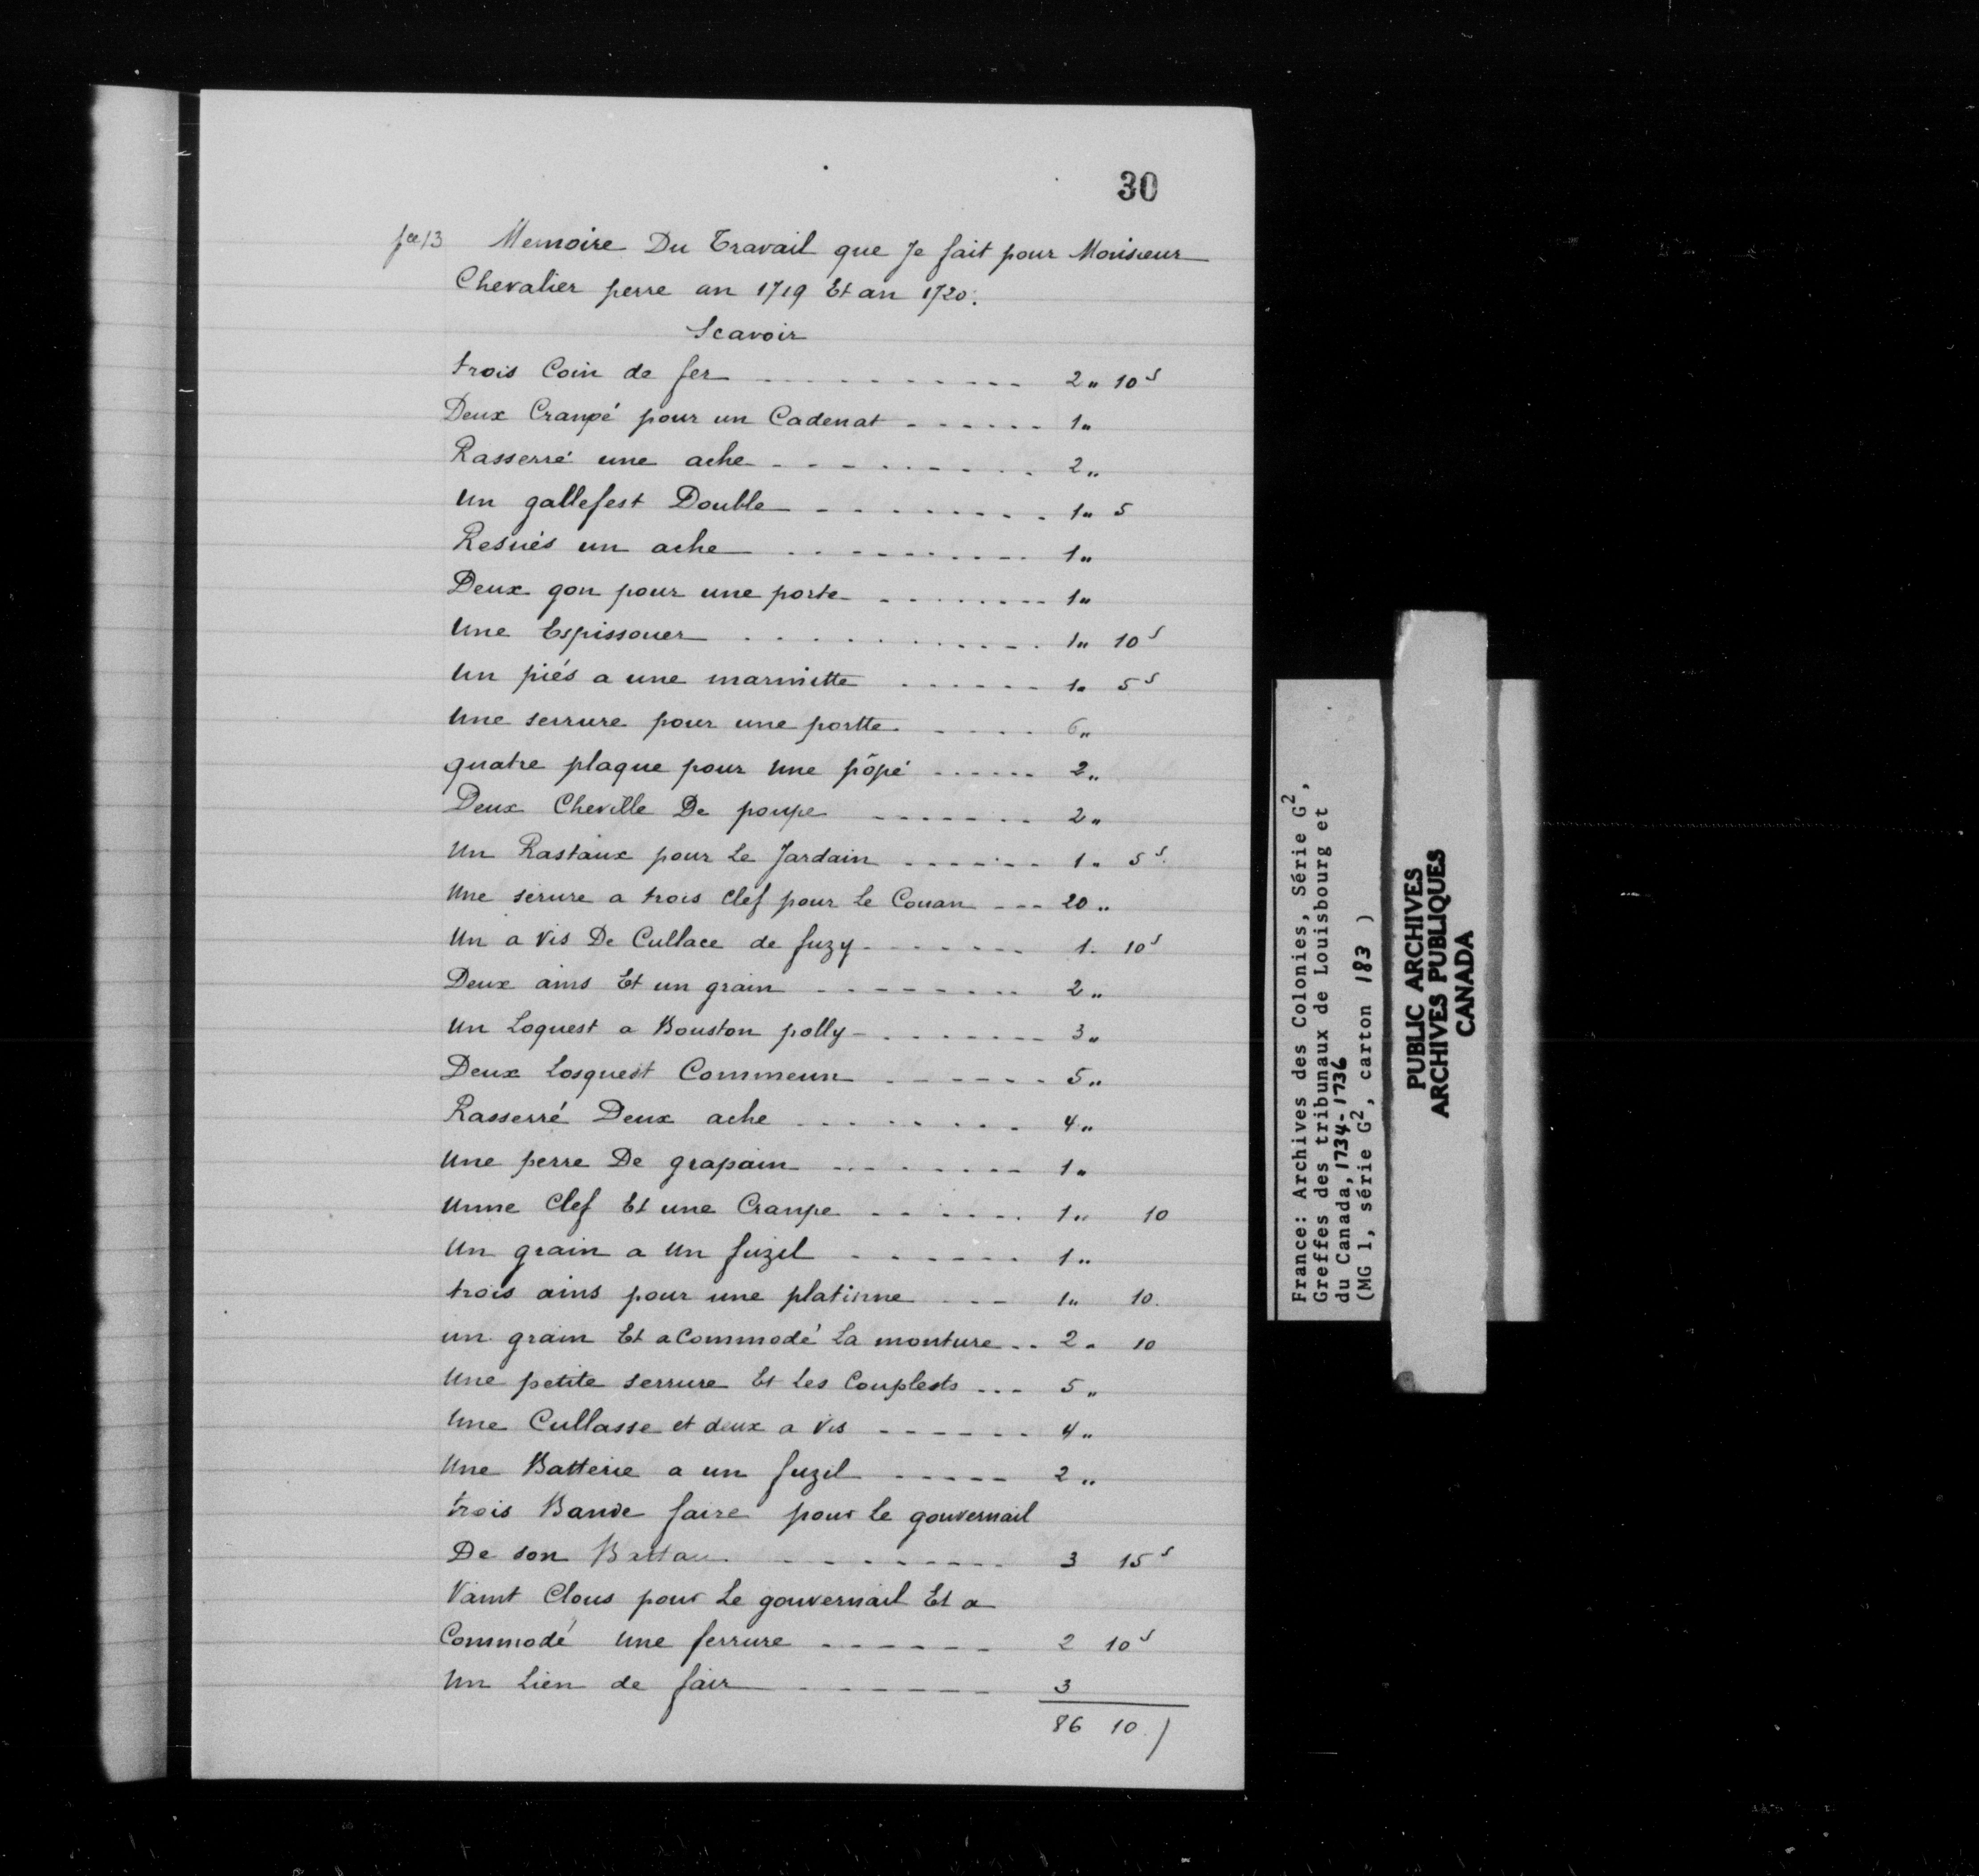 30
fce 13 Memoire Du Travail que Je fait pour Monsieur
Chevalier perre an 1719 Et an 1720.
Scavoir
trois Coin de fer 2 " 10 s
Deux Crampé pour un Cadenat 1 "
Rasserré une ache 2 "
Un gallefest Double 1 " 5
Resués un ache 1 "
Deux gon pour une porte 1 "
Une Espissouer 1 " 10 s
Un piés a une marmitte 1 " 5 s
Une serrure pour une portte 6 "
quatre plaque pour une põpé 2 "
Deux Cheville De poupe 2 "
Un Rastaux pour Le Jardain 1 " 5 s
Une serure a trois Clef pour Le Couan 20 "
Un a Vis De Cullace de fuzy 1 . 10 s
Deux ains Et un grain 2 "
Un Loquest a Bouston polly 3 "
Deux Losquest Commeun 5 "
Rasserré Deux ache 4 "
Une perre De grapain 1 "
Unne Clef Et une Crampe 1 " 10
Un grain a Un fuzil 1 "
trois ains pour une platinne 1 " 10
un grain Et acommodé La monture 2 " 10
Une petite serrure Et Les Couplests 5 "
Une Cullasse et deux a Vis 4 "
Une Batterie a un fuzil 2 "
trois Bande faire pour Le gouvernail
De son Battau 3 15 s
Vaint Clous pour Le gouvernail Et a
Commodé Une ferrure 2 10 s
Un Lien de fair 3
86 10
France: Archives des Colonies, Série G2,
Greffes des tribunaux de Louisbourg et
du Canada, 1734-1736
(MG 1, série G2, carton 183 )
PUBLIC ARCHIVES
ARCHIVES PUBLIQUES
CANADA